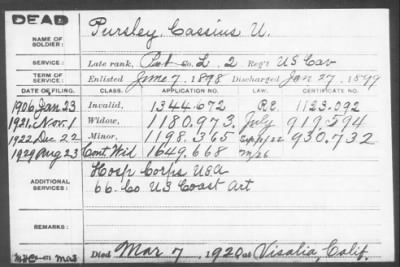 DEAD
NAME OF SOLDIER: Pursley, Cassius U.
SERVICE: Late rank, Pvt Co. L. 2 Reg't US Cav
TERM OF SERVICE: Enlisted June 7, 1898 Discharged Jan 27, 1899
DATE OF FILING. CLASS. APPLICATION NO. LAW. CERTIFICATE NO.
1906 Jan 23 Invalid, 1344.672 1123.092
1921, Nov. 1 Widow, 1180.973, July 919.594
1922 Dec 22 Minor, 1198.365 930.732
1929 Aug 23 Cont Wid 1649.668
ADDITIONAL SERVICES: Hosp Corps USA
66. Co US Coast Art
REMARKS:
Died Mar 7, 1920 at Visalia, Calif.